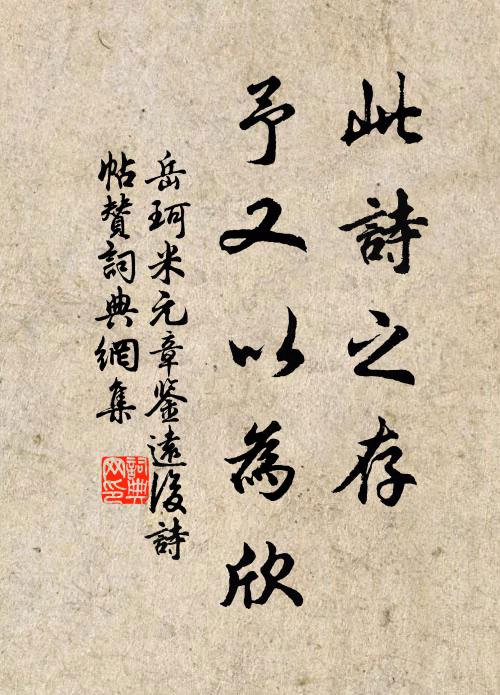 此詩之存
予又以為欣
岳珂米元章鉴遠後詩
帖贊詞典網集
詞典網印